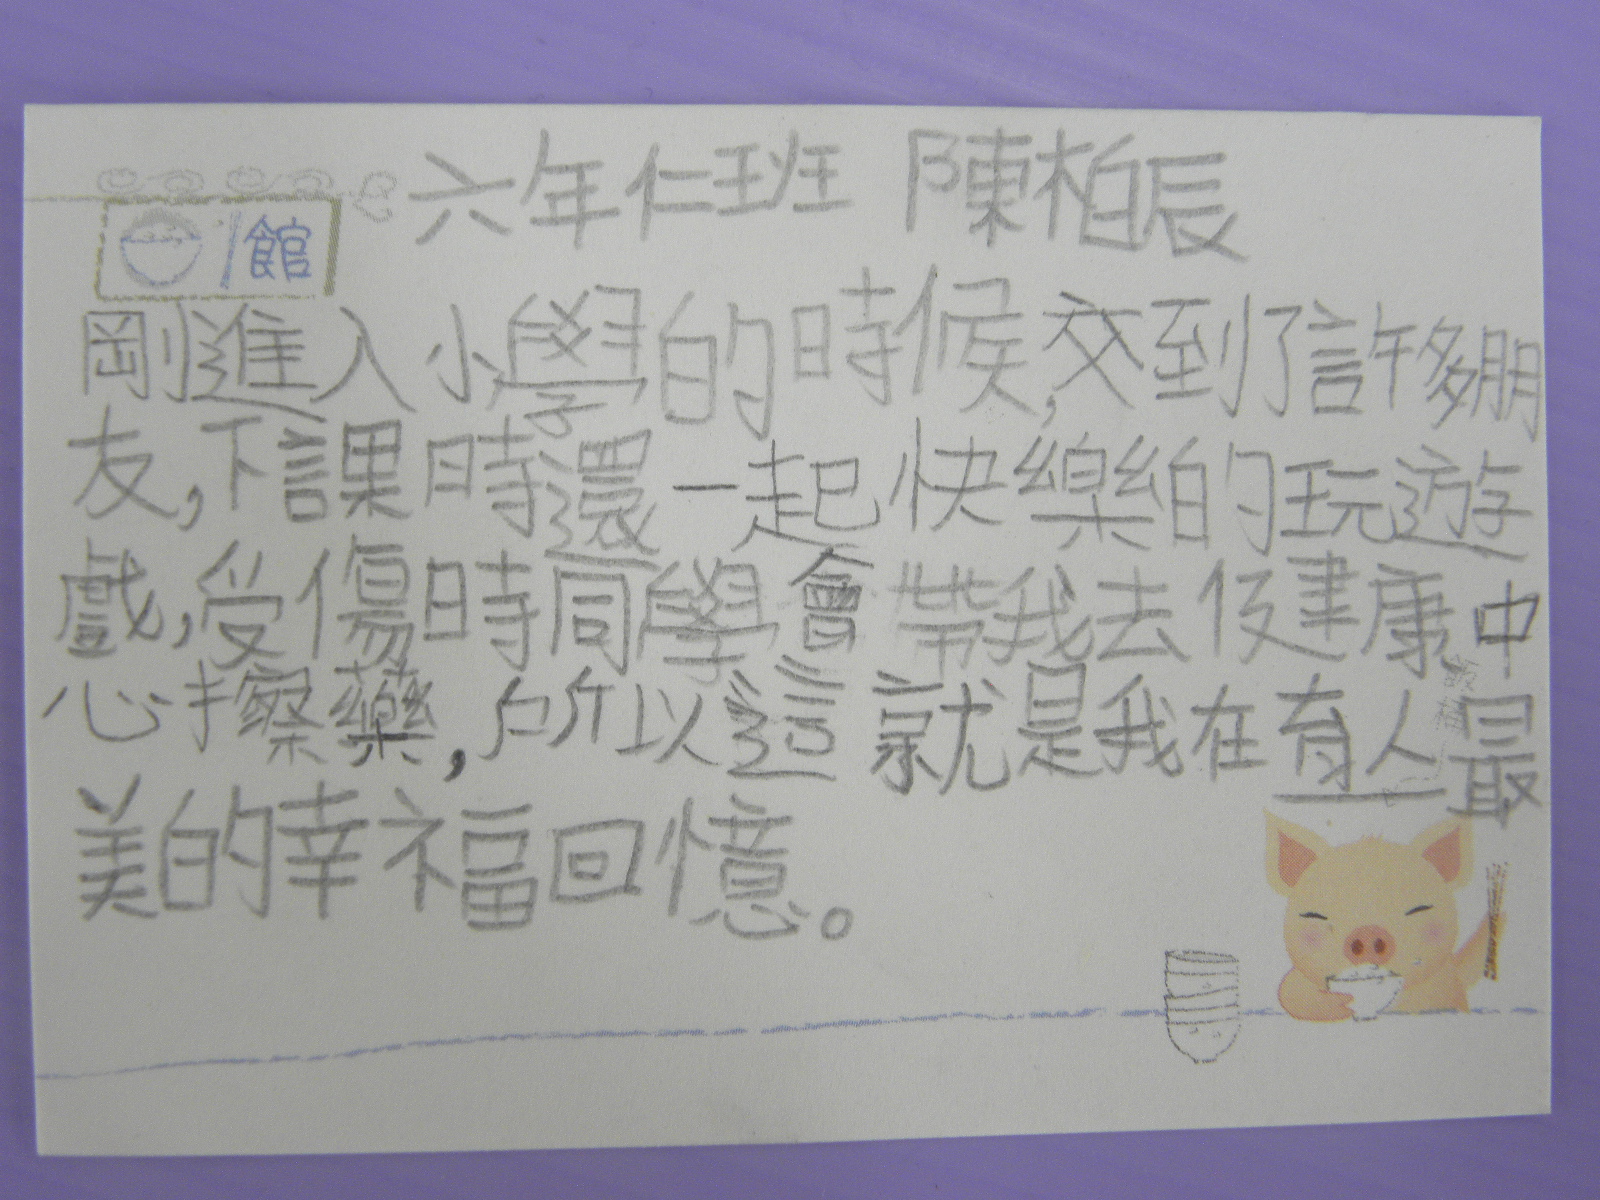 六年仁班 陳柏辰
館
剛進入小學的時候,交到了許多朋
友,下課時還一起快樂的玩遊
戲,受傷時同學會帶我去健康中
心擦藥,所以這就是我在有人最
美的幸福回憶。